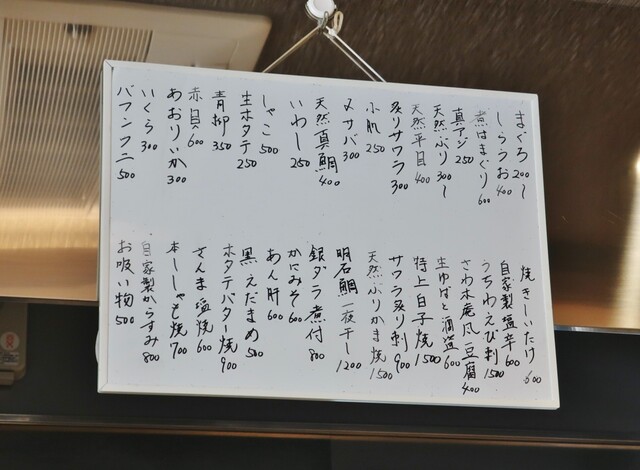 まぐろ 200〜
しらうお 400
煮はまぐり 600
真アジ 250
天然ぶり 300〜
天然平目 400
炙りサワラ 300
小肌 250
〆サバ 300
天然真鯛 400
いわし 250
しゃこ 500
生ホタテ 250
青柳 350
赤貝 600
あおりいか 300
いくら 300
バフンウニ 500
焼きしいたけ 600
自家製塩辛 600
うちわえび刺 1500
さわ木庵風豆腐 400
生ゆばと酒盗 600
特上白子焼 1500
サワラ炙り刺 900
天然ぶりかま焼 1500
明石鯛一夜干し 1200
銀ダラ煮付 800
かにみそ 600
あん肝 600
黒えだまめ 500
ホタテバター焼 900
さんま塩焼 600
本ししゃも焼 700
自家製からすみ 800
お吸い物 500